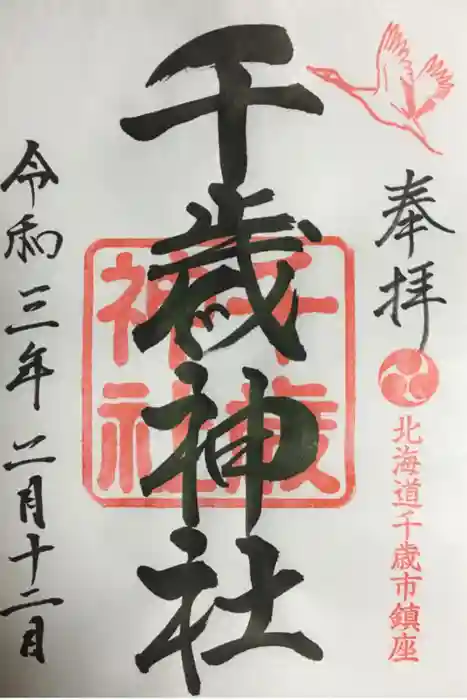 奉拝
北海道千歳市鎮座
千歳神社
千歳
神社
令和三年二月十二日